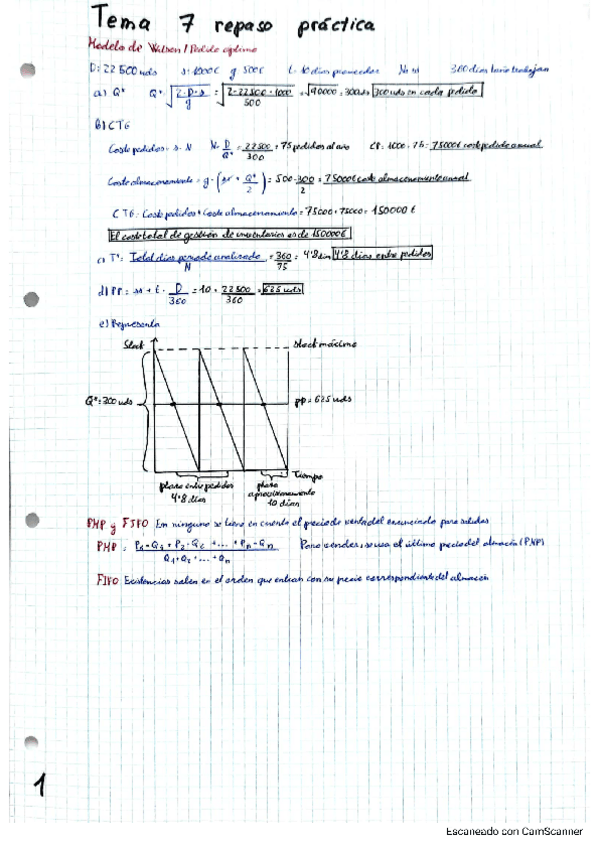 Tema 7 repaso práctica
Modelo de Wilson / Pedido óptimo
D: 22 500 uds s: 1000€ g 500€ t: 10 días proveedor No ss 360 días
a) Q* Q* = √2·D·s/g = √2·22500·1000/500 = √90000 = 300uds 300 uds en cada pedido
B) CTG
Coste pedidos = s·N N = D/Q* = 22500/300 = 75 pedidos al año CP = 1000·75 = 75000€ coste pedido anual
Coste almacenamiento = g·(ss + Q*/2) = 500·300/2 = 75000€ coste almacenamiento anual
CTG = Coste pedidos + Coste almacenamiento = 75000 + 75000 = 150000 €
El coste total de gestión de inventarios es de 150000€
c) T* = Total días periodo analizado/N = 360/75 = 4'8 días 4'8 días entre pedidos
d) PP = ss + t · D/360 = 10 · 22500/360 = 625 uds
e) Representa
Stock
Stock máximo
Q* = 300 uds
pp = 625 uds
Tiempo
plazo entre pedidos
4'8 días
plazo
aprovisionamiento
10 días
PMP y FIFO En ninguno se tiene en cuenta el precio de venta del enunciado para salidas
PMP = P1·Q1 + P2·Q2 + ... + Pn·Qn / Q1 + Q2 + ... + Qn Para vender, se usa el último precio del almacén (PMP)
FIFO Existencias salen en el orden que entran con su precio correspondiente del almacén
1
Escaneado con CamScanner